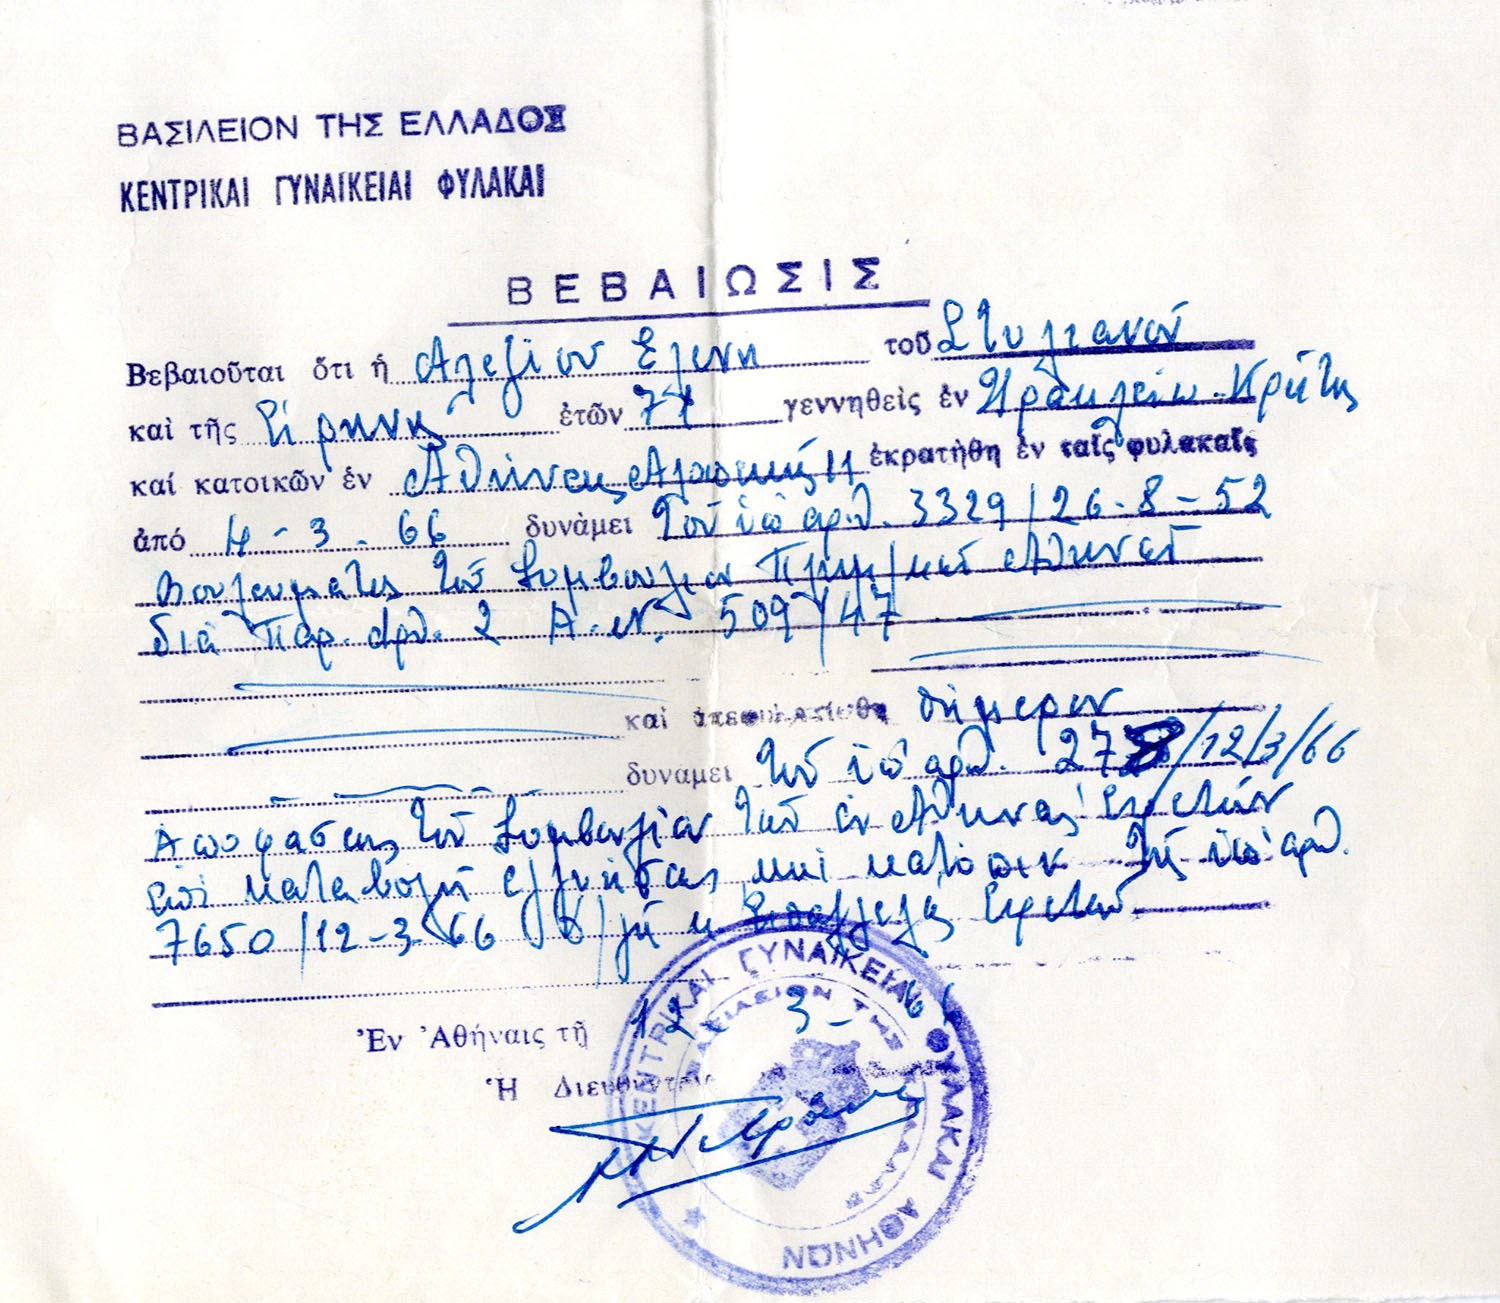 ΒΑΣΙΛΕΙΟΝ ΤΗΣ ΕΛΛΑΔΟΣ
ΚΕΝΤΡΙΚΑΙ ΓΥΝΑΙΚΕΙΑΙ ΦΥΛΑΚΑΙ
ΒΕΒΑΙΩΣΙΣ
Βεβαιοῦται ὅτι ἡ Αλεξίου Έλενη τοῦ Στυλιανού
καὶ τῆς Ειρήνης ἐτῶν 77 γεννηθεὶς ἐν Ηρακλείω Κρήτης
καί κατοικῶν ἐν Αθήνας 11 ἐκρατήθη ἐν ταῖς φυλακαῖς
ἀπό 4-3-66 δυνάμει του υπ' αρθ. 3329/26-8-52
βουλευματος του Συμβουλίου Πλημ/κων Αθηνών
διά παρ. αρθ. 2 Α.Ν. 509/47
καὶ ἀπεφυλακίσθη σήμερον
δυνάμει της υπ' αρθ. 278/12/3/66
Αποφάσεως του Συμβουλίου των εν Αθήναις Εφετών
επί καταβολή εγγυήσεως και κατόπιν της υπ' αρθ.
7650/12-3-66 Δ/γής κ. Εισαγγελέως Εφετών
Ἐν Ἀθήναις τῇ 12 3-66
Ἡ Διευθύντρια
ΚΕΝΤΡΙΚΑΙ ΓΥΝΑΙΚΕΙΑΙ ΦΥΛΑΚΑΙ ΑΘΗΝΩΝ
ΒΑΣΙΛΕΙΟΝ ΤΗΣ ΕΛΛΑΔΟΣ